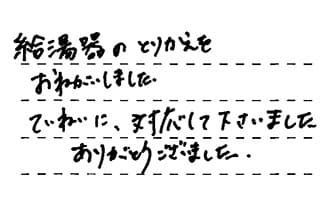 給湯器のとりかえを
おねがいしました
ていねいに、対応して下さいました
ありがとうございました.